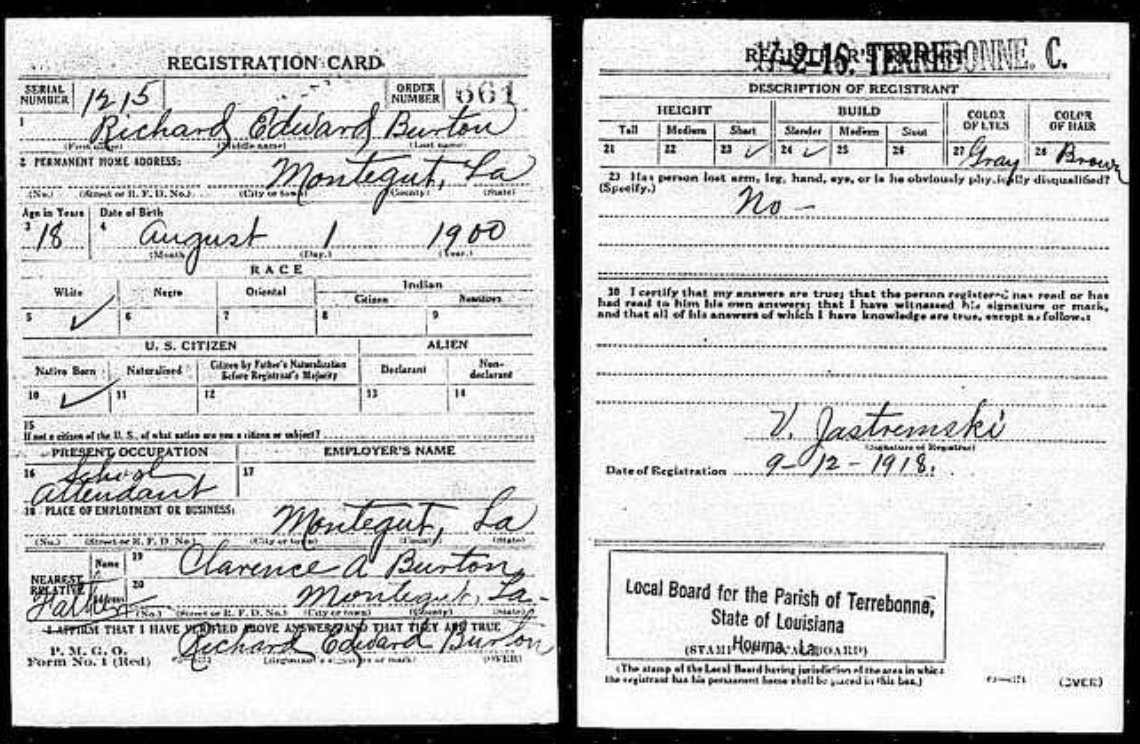 REGISTRATION CARD
SERIAL NUMBER 1215 ORDER NUMBER 661
1 Richard Edward Burton
(First name) (Middle name) (Last name)
2 PERMANENT HOME ADDRESS:
Montegut, La
(No.) (Street or R. F. D. No.) (City or town) (County) (State)
Age in Years Date of Birth
3 18 4 August 1 1900
(Month) (Day.) (Year.)
RACE
White Negro Oriental Indian
Citizen
5 ✓ 6 7 8 9
U. S. CITIZEN ALIEN
Native Born Naturalized Citizen by Father's Naturalization Before Registrant's Majority Declarant Non-declarant
10 ✓ 11 12 13 14
15
If not a citizen of the U. S., of what nation are you a citizen or subject?
PRESENT OCCUPATION EMPLOYER'S NAME
16 School Attendant 17
18 PLACE OF EMPLOYMENT OR BUSINESS:
Montegut, La
(No.) (Street or R. F. D. No.) (City or town) (County) (State)
NEAREST RELATIVE Name 19 Clarence A Burton
Father Address 20 Montegut, La-
(No.) (Street or R. F. D. No.) (City or town) (County) (State)
I AFFIRM THAT I HAVE VERIFIED ABOVE ANSWERS AND THAT THEY ARE TRUE
P. M. G. O.
Form No. 1 (Red) Richard Edward Burton
(Registrant's signature or mark) (OVER)
REGISTRAR'S REPORT
17-2-16. TERREBONNE. C.
DESCRIPTION OF REGISTRANT
HEIGHT BUILD COLOR OF EYES COLOR OF HAIR
Tall Medium Short Slender Medium Stout
21 22 23 ✓ 24 ✓ 25 26 27 Gray 28 Brown
29 Has person lost arm, leg, hand, eye, or is he obviously physically disqualified?
(Specify.)
No -
30 I certify that my answers are true; that the person registered has read or has
had read to him his own answers; that I have witnessed his signature or mark,
and that all of his answers of which I have knowledge are true, except as follows:
V. Jastremski
(Signature of Registrar)
Date of Registration 9-12-1918.
Local Board for the Parish of Terrebonne,
State of Louisiana
Houma, La.
(STAMP OF LOCAL BOARD)
(The stamp of the Local Board having jurisdiction of the area in which
the registrant has his permanent home shall be placed in this box.)
(OVER)